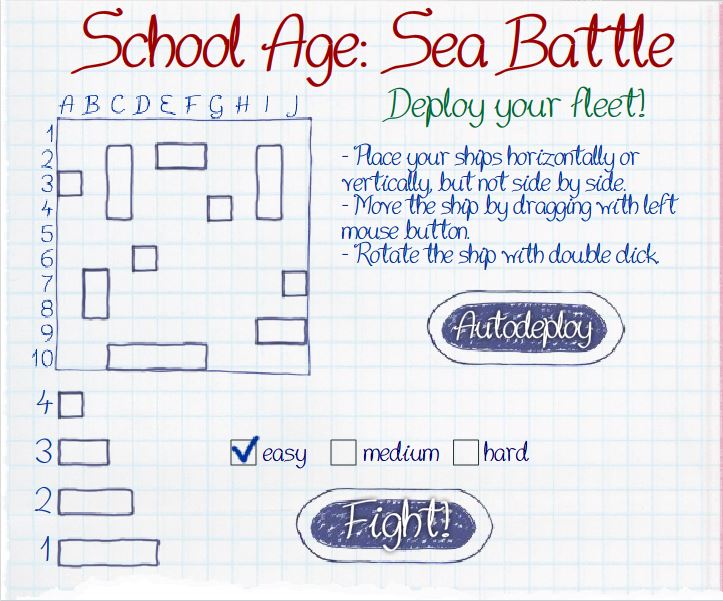 School Age: Sea Battle
A B C D E F G H I J
Deploy your fleet!
1
2
3
4
5
6
7
8
9
10
- Place your ships horizontally or
vertically, but not side by side.
- Move the ship by dragging with left
mouse button.
- Rotate the ship with double click.
Autodeploy
4
3
easy medium hard
2
Fight!
1